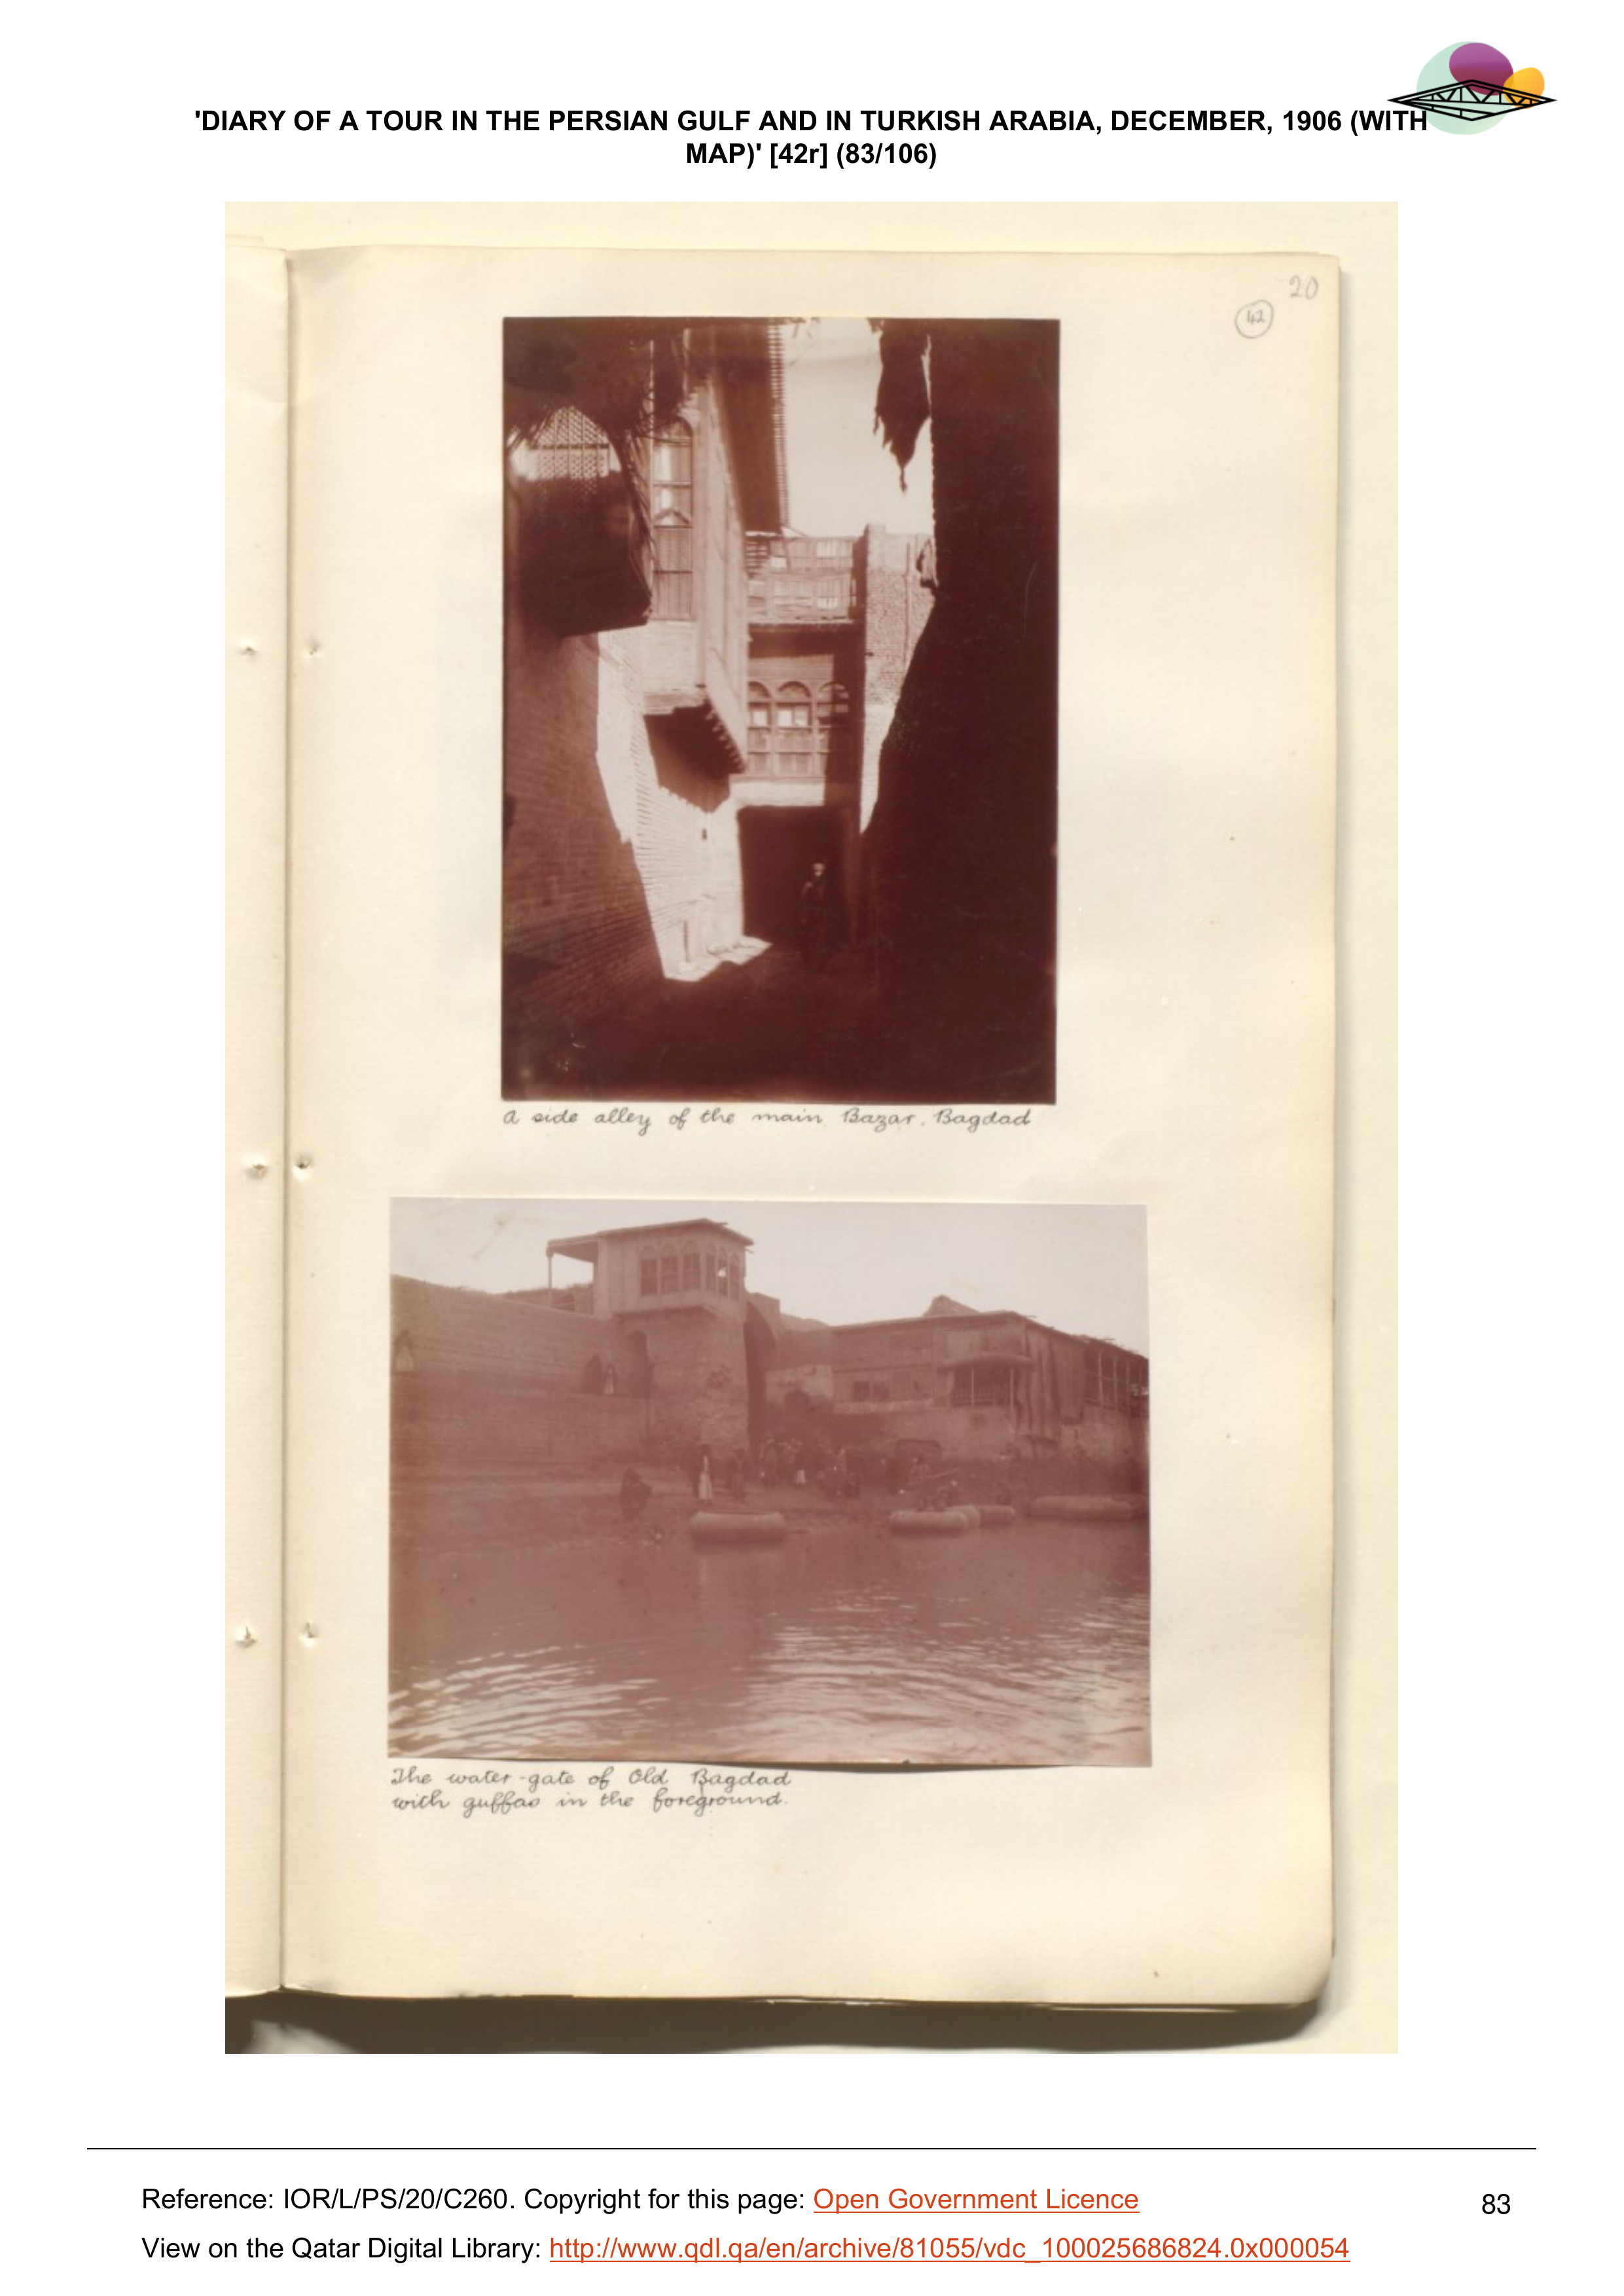 'DIARY OF A TOUR IN THE PERSIAN GULF AND IN TURKISH ARABIA, DECEMBER, 1906 (WITH
MAP)' [42r] (83/106)
20
42
A side alley of the main Bazar. Bagdad
The water-gate of Old Bagdad
with guffas in the foreground.
Reference: IOR/L/PS/20/C260. Copyright for this page: Open Government Licence
83
View on the Qatar Digital Library: http://www.qdl.qa/en/archive/81055/vdc_100025686824.0x000054